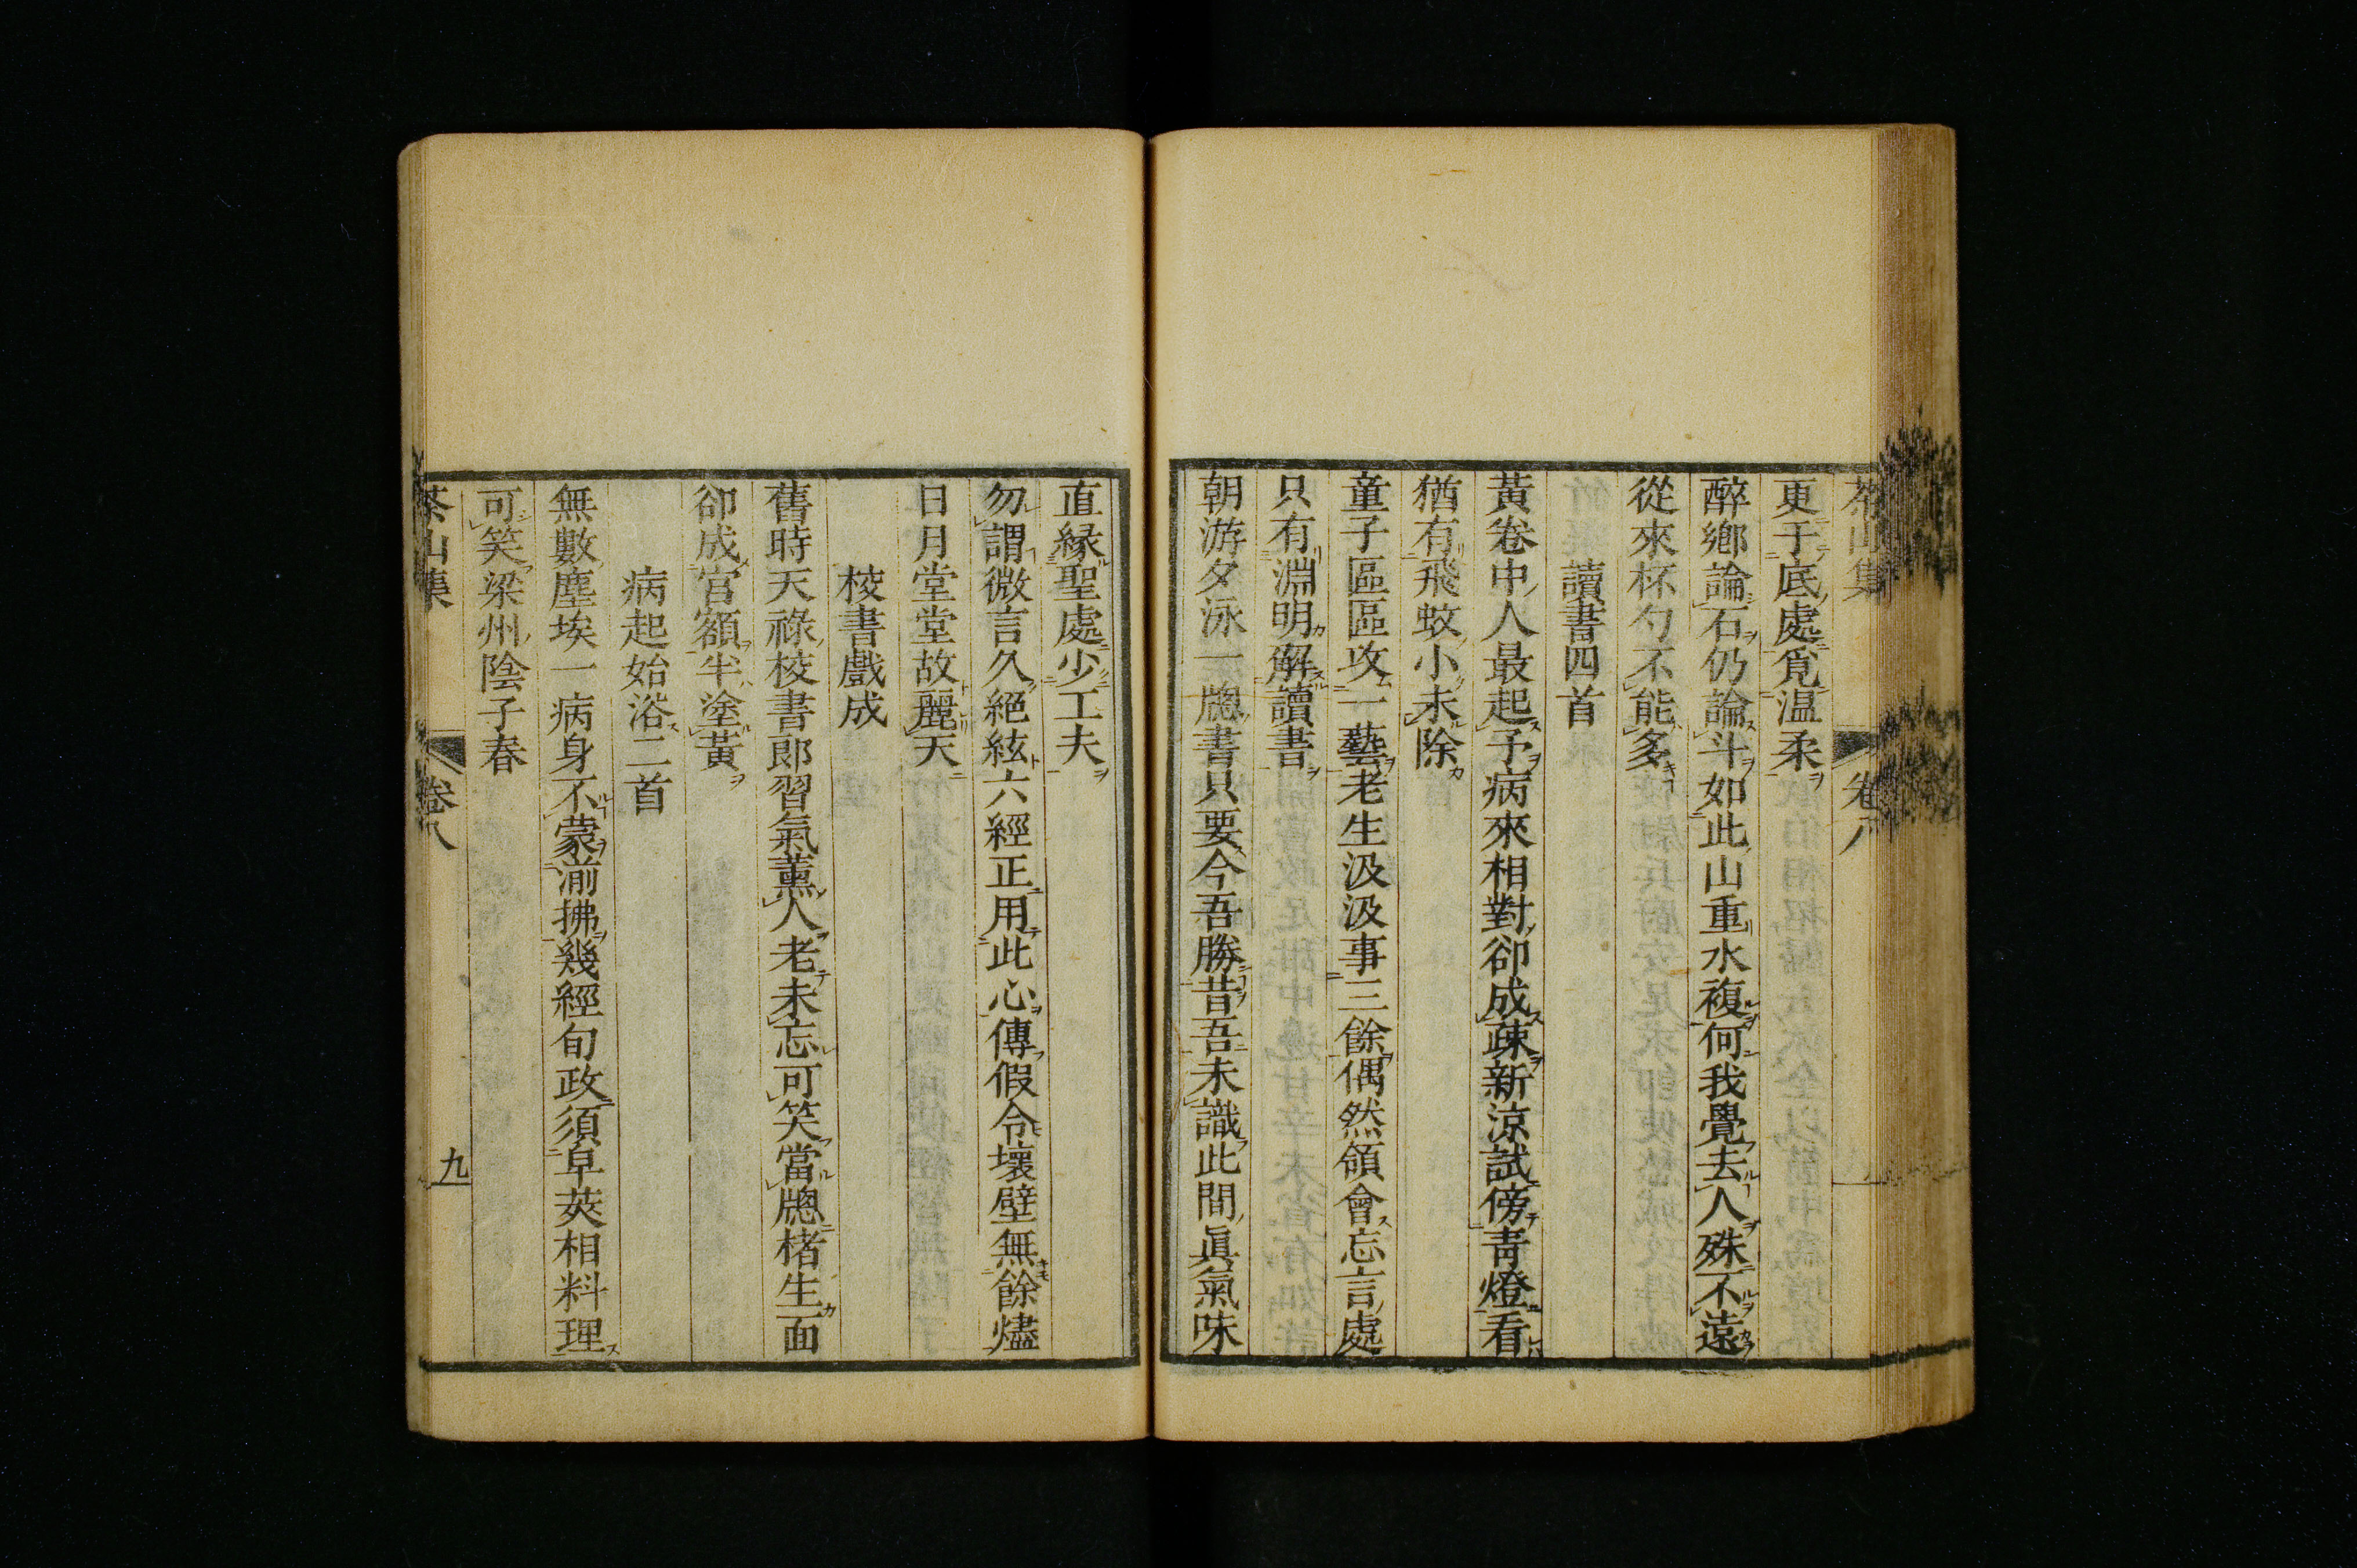 茶山集 卷八
更于底處覓温柔
醉鄉論石仍論斗如此山重水複何我覺去人殊不遠
從來杯勺不能多
讀書四首
黃卷中人最起予病來相對卻成疎新涼試傍青燈看
猶有飛蚊小未除
童子區區攻一藝老生汲汲事三餘偶然領會忘言處
只有淵明解讀書
朝游夕泳一牕書只要今吾勝昔吾未識此間眞氣味
直緣聖處少工夫
勿謂微言久絕絃六經正用此心傳假令壞壁無餘燼
日月堂堂故麗天
校書戲成
舊時天祿校書郎習氣薰人老未忘可笑當牕楮生面
卻成宮額半塗黃
病起始浴二首
無數塵埃一病身不蒙湔拂幾經旬政須皁莢相料理
可笑梁州陰子春
茶山集 卷八 九